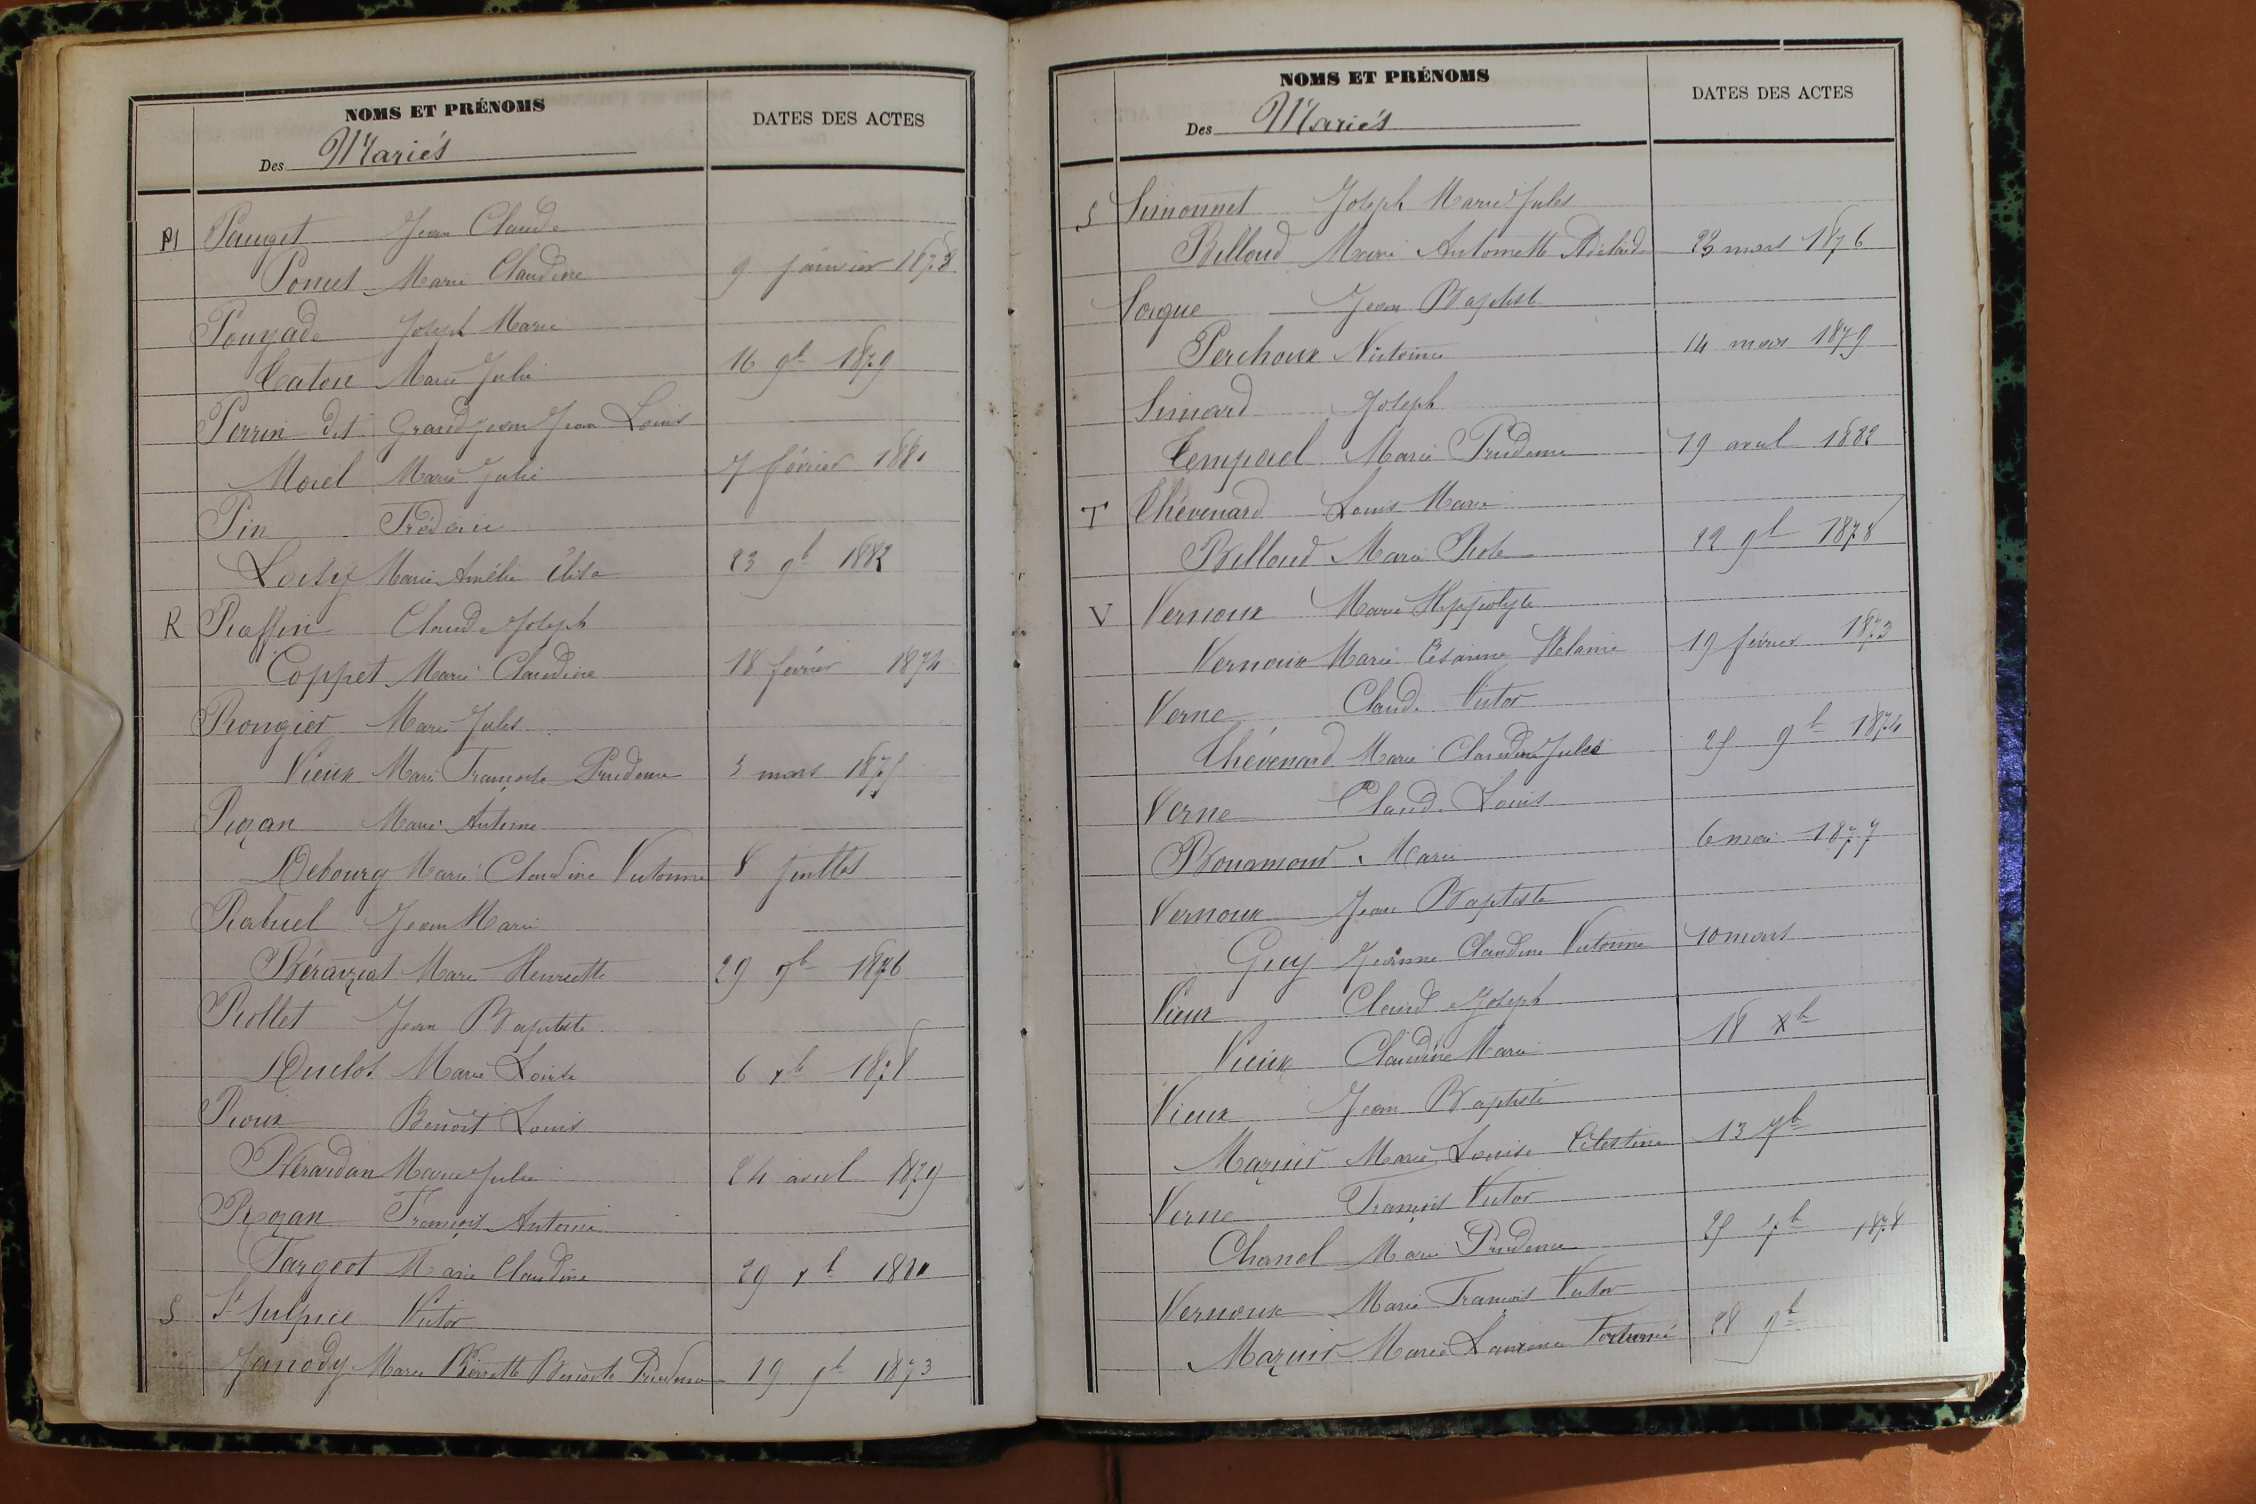 NOMS ET PRÉNOMS
Des Mariés
DATES DES ACTES
P Pauget Jean Claude
Poncet Marie Claudine 9 janvier 1878
Pouyade Joseph Marie
Caton Marie Julie 16 9b 1879
Perrin dit Grandjean Jean Louis
Morel Marie Julie 7 février 1881
Pin Fréderic
Loisy Marie Amélie Élisa 23 9b 1882
R Raffin Claude Joseph
Coppet Marie Claudine 18 février 1874
Rongier Marie Jules
Vieux Marie Françoise Prudence 3 mars 1875
Rozan Marie Antoine
Debourg Marie Claudine Victorine 8 juillet
Rabuel Jean Marie
Béraiziat Marie Henriette 29 9b 1876
Rollet Jean Baptiste
Duclos Marie Louise 6 xb 1878
Roux Benoit Louis
Bérardan Marie Julie 24 avril 1879
Rozan François Antoine
Fargeot Marie Claudine 29 xb 1880
S St Sulpice Victor
Janody Marie Pierrette Benoite Prudence 19 9b 1873
NOMS ET PRÉNOMS
Des Mariés
DATES DES ACTES
S Simonnet Joseph Marie Jules
Billoud Marie Antoinette 23 mars 1876
Jean Baptiste
Perchoux Victorine 14 mars 1879
Simard Joseph
Temporel Marie Prudence 19 avril 1882
T Thévenard Louis Marie
Billoud Marie 22 9b 1878
V Vernoux Marie Hippolyte
Vernoux Marie Césarine Mélanie 19 février 1873
Verne Claude Victor
Thévenard Marie Claudine Julie 25 9b 1874
Verne Claude Louis
Bonamour Marie 6 mai 1877
Vernoux Jean Baptiste
Guy Jeanne Claudine Victorine 10 mars
Vieux Claude Joseph
Vieux Claudine Marie 18 xb
Vieux Jean Baptiste
Mazuir Marie Louise Célestine 13 7b
Verne François Victor
Chanel Marie Prudence 25 7b 1878
Vernoux Marie François Victor
Mazuir Marie Laurence Fortunée 28 9b